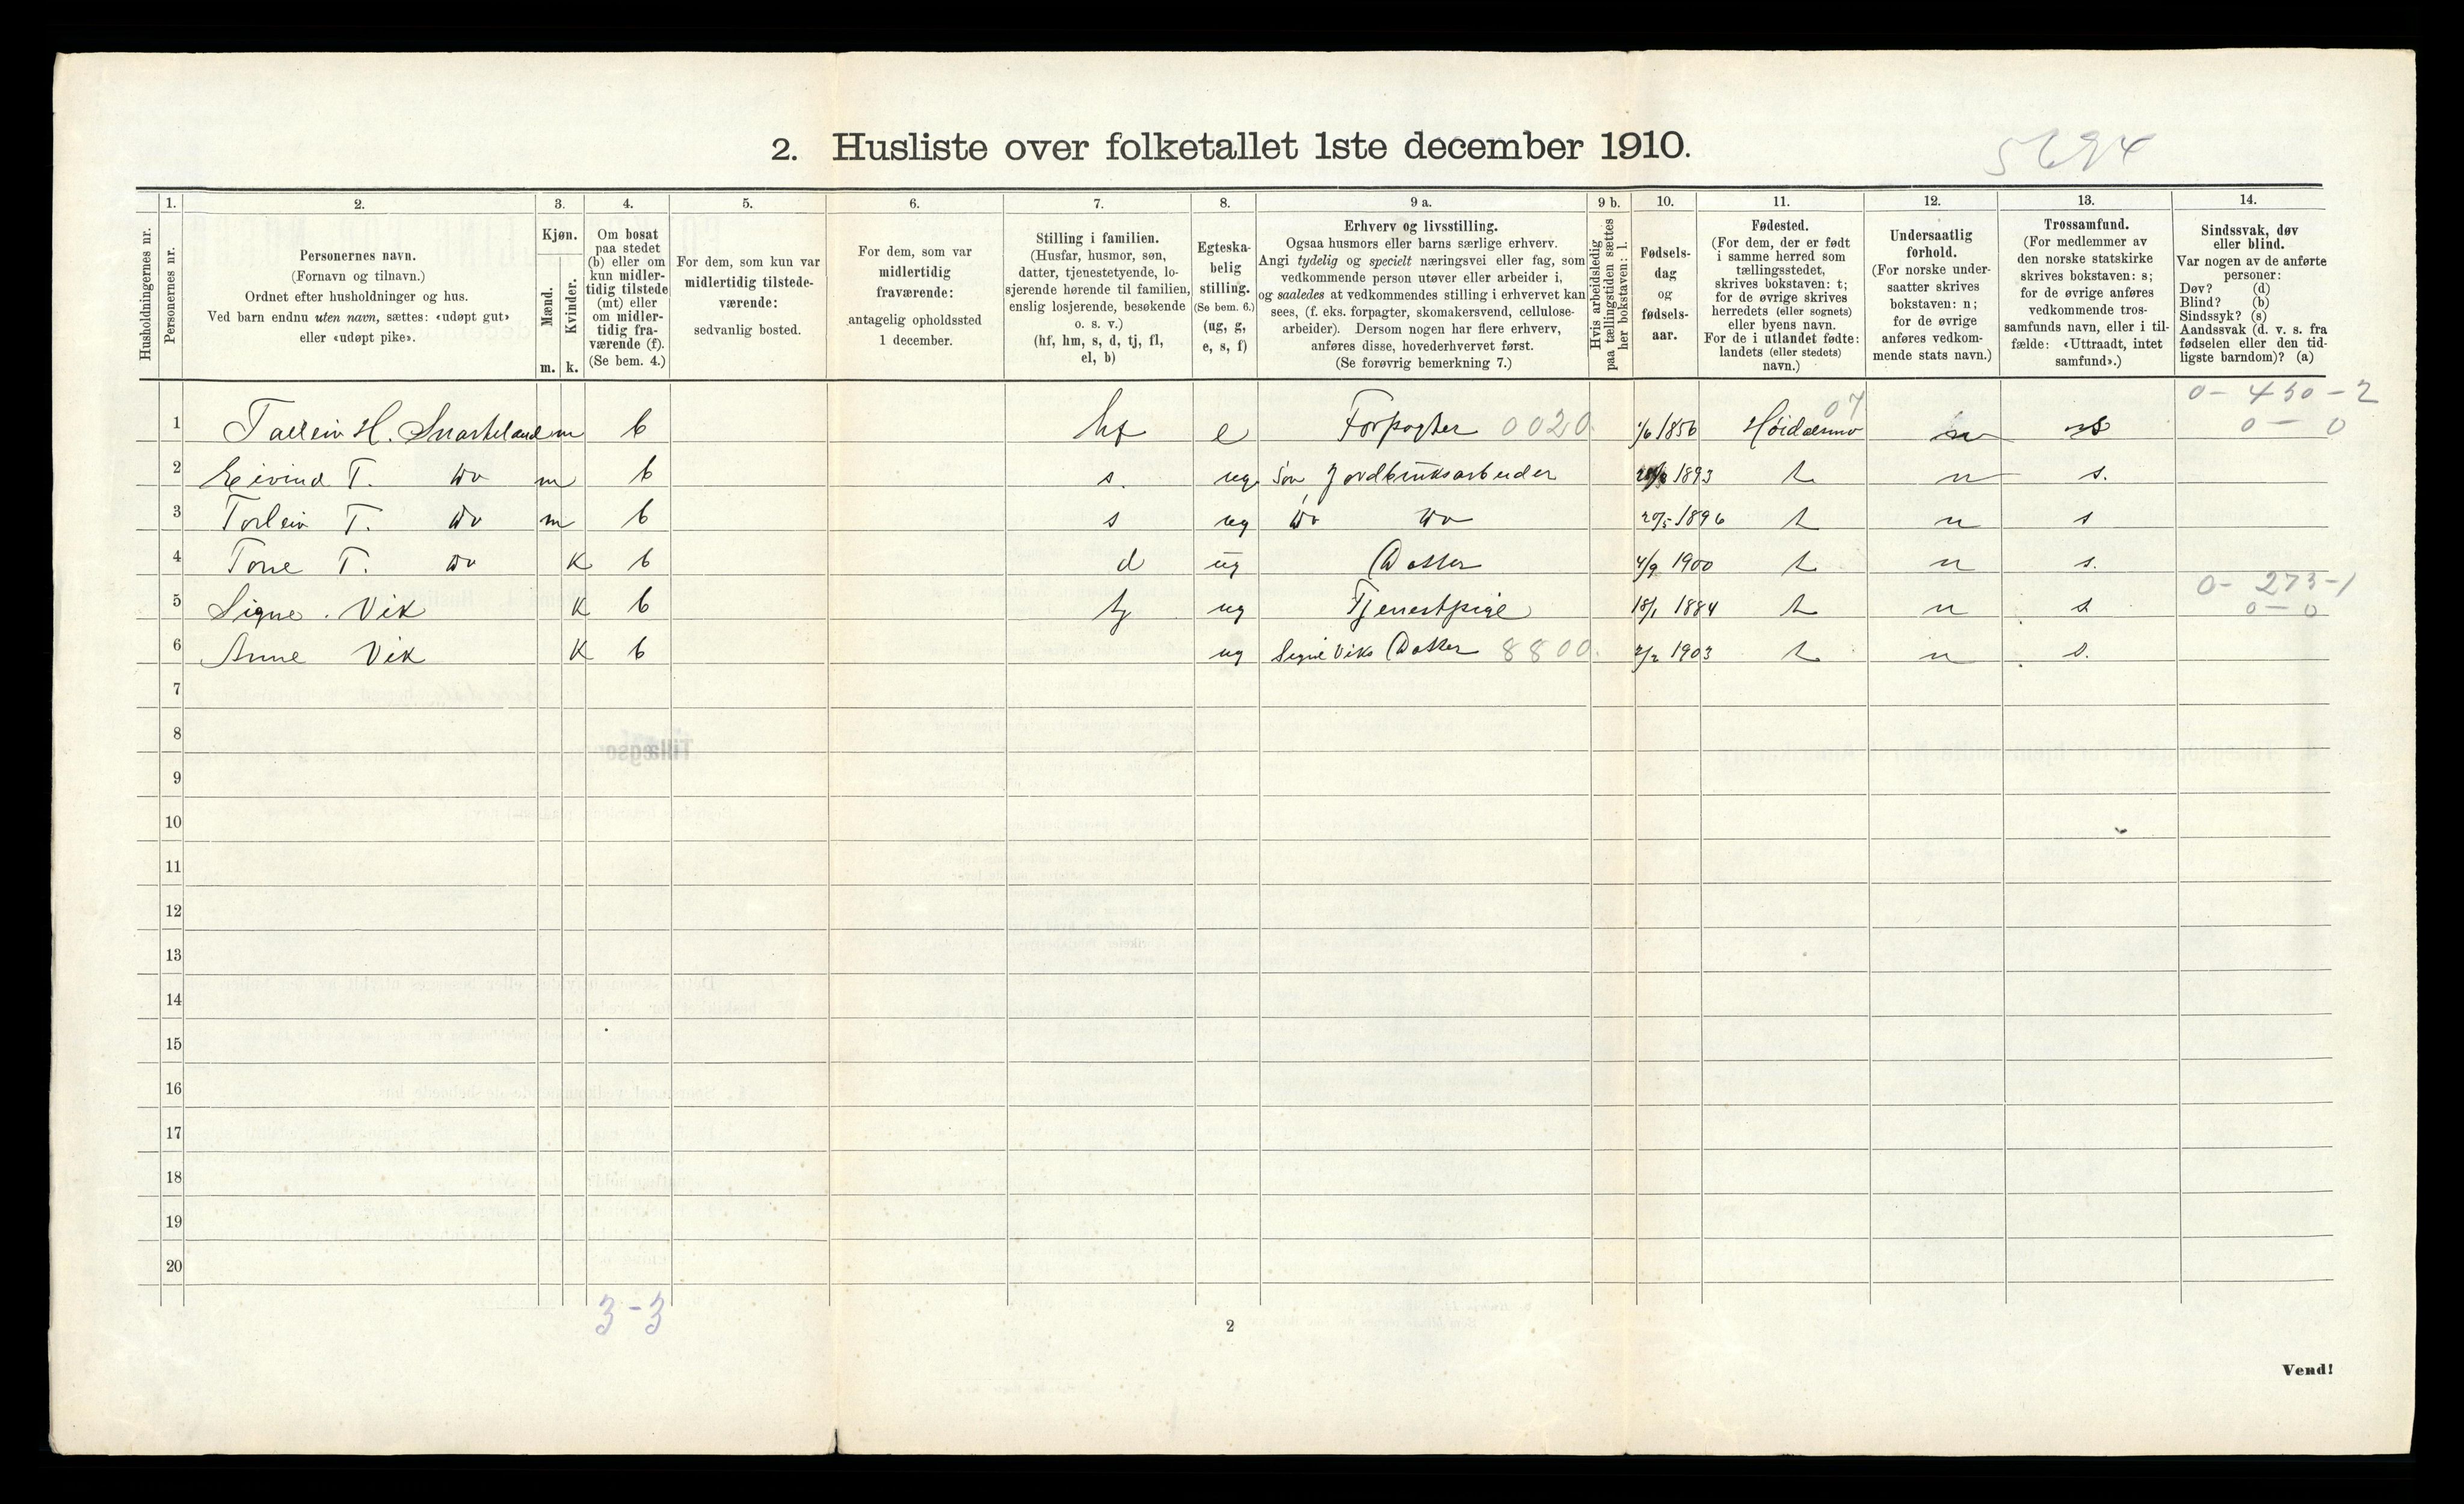 2. Husliste over folketallet 1ste december 1910.
5694
Husholdningernes nr.
1.
Personernes nr.
2.
Personernes navn.
(Fornavn og tilnavn.)
Ordnet efter husholdninger og hus.
Ved barn endnu uten navn, sættes: «udøpt gut»
eller «udøpt pike».
3.
Kjøn.
Mænd.
Kvinder.
m. k.
4.
Om bosat
paa stedet
(b) eller om
kun midler-
tidig tilstede
(mt) eller
om midler-
tidig fra-
værende (f).
(Se bem. 4.)
5.
For dem, som kun var
midlertidig tilstede-
værende:
sedvanlig bosted.
6.
For dem, som var
midlertidig
fraværende:
antagelig opholdssted
1 december.
7.
Stilling i familien.
(Husfar, husmor, søn,
datter, tjenestetyende, lo-
sjerende hørende til familien,
enslig losjerende, besøkende
o. s. v.)
(hf, hm, s, d, tj, fl,
el, b)
8.
Egteska-
belig
stilling.
(Se bem. 6.)
(ug, g,
e, s, f)
9 a.
Erhverv og livsstilling.
Ogsaa husmors eller barns særlige erhverv.
Angi tydelig og specielt næringsvei eller fag, som
vedkommende person utøver eller arbeider i,
og saaledes at vedkommendes stilling i erhvervet kan
sees, (f. eks. forpagter, skomakersvend, cellulose-
arbeider). Dersom nogen har flere erhverv,
anføres disse, hovederhvervet først.
(Se forøvrig bemerkning 7.)
9 b.
Hvis arbeidsledig
paa tællingstiden sættes
her bokstaven: l.
10.
Fødsels-
dag
og
fødsels-
aar.
11.
Fødested.
(For dem, der er født
i samme herred som
tællingsstedet,
skrives bokstaven: t;
for de øvrige skrives
herredets (eller sognets)
eller byens navn.
For de i utlandet fødte:
landets (eller stedets)
navn.)
12.
Undersaatlig
forhold.
(For norske under-
saatter skrives
bokstaven: n;
for de øvrige
anføres vedkom-
mende stats navn.)
13.
Trossamfund.
(For medlemmer av
den norske statskirke
skrives bokstaven: s;
for de øvrige anføres
vedkommende tros-
samfunds navn, eller i til-
fælde: «Uttraadt, intet
samfund».)
14.
Sindssvak, døv
eller blind.
Var nogen av de anførte
personer:
Døv? (d)
Blind? (b)
Sindssyk? (s)
Aandssvak (d. v. s. fra
fødselen eller den tid-
ligste barndom)? (a)
0 - 450 - 2
1 Talleiv H. Snarteland m b hf e Forpagter 0020 1/6 1856 Høidalsmo 07 n s 0 - 0
2 Eivind T. do m b s. ug Søn Jordbruksarbeider 1893 t n s.
3 Torleiv T. do m b s ug do do 20/5 1896 t n s
4 Tone T. do k b d ug Datter 4/9 1900 t n s.
0 - 273 - 1
5 Signe Vik k b tj ug Tjenestpige 18/1 1884 t n s 0 - 0
6 Anne Vik k b ug Signe Viks Datter 8800. 2/2 1903 t n s.
7
8
9
10
11
12
13
14
15
16
17
18
19
20
3 - 3
2
Vend!